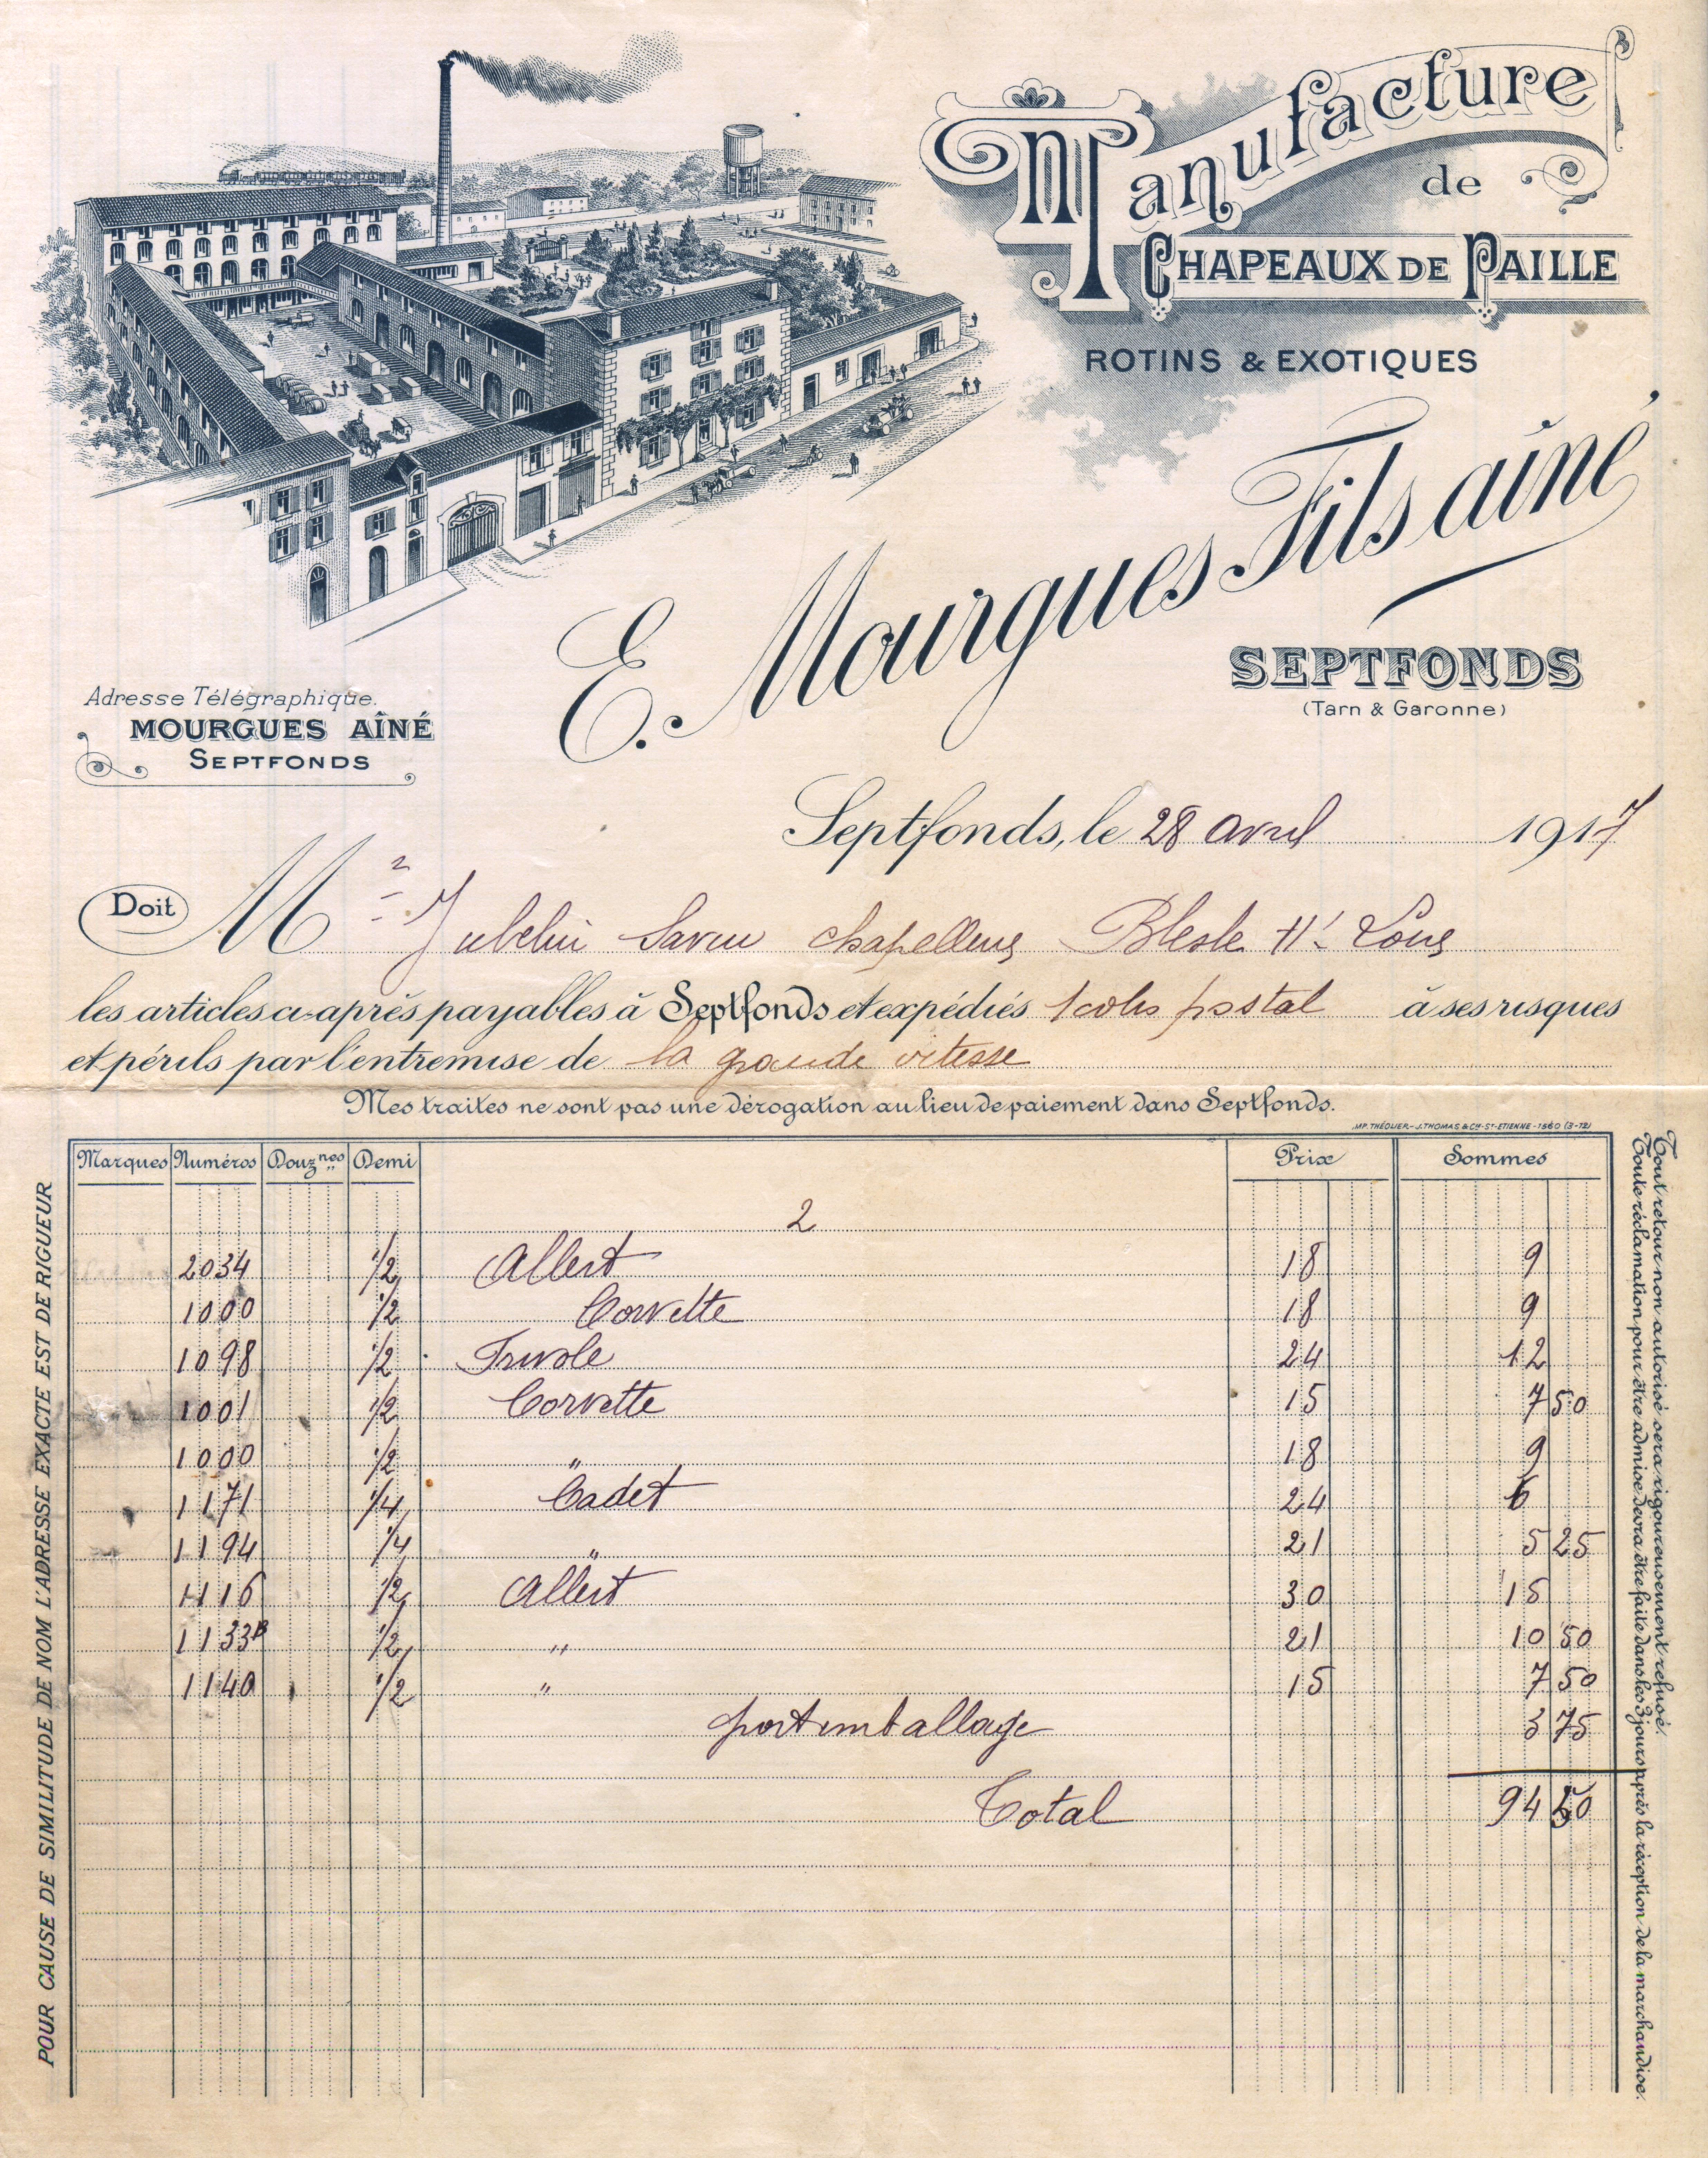 Manufacture
de
CHAPEAUX DE PAILLE
ROTINS & EXOTIQUES
E. Mourgues Fils aîné
SEPTFONDS
(Tarn & Garonne)
Adresse Télégraphique.
MOURGUES AÎNÉ
SEPTFONDS
Septfonds, le 28 avril 1917
Doit M chapellerie Blesle Hte Loire
les articles ci-après payables à Septfonds et expédiés 1 colis postal à ses risques
et périls par l'entremise de la grande vitesse
Mes traites ne sont pas une dérogation au lieu de paiement dans Septfonds.
IMP. THÉOLIER - J. THOMAS & Cie - ST-ETIENNE - 1560 (3-12)
Marques Numéros Douznes Demi Prix Sommes
2
2034 1/2 Allert 18 9
1000 1/2 Corvette 18 9
1098 1/2 Frivole 24 12
1001 1/2 Corvette 15 7 50
1000 1/2 " 18 9
1171 1/4 Cadet 24 6
1194 1/4 " 21 5 25
1116 1/2 Allert 30 15
1133B 1/2 " 21 10 50
1140 1/2 " 15 7 50
port emballage 3 75
Total 94 50
POUR CAUSE DE SIMILITUDE DE NOM L'ADRESSE EXACTE EST DE RIGUEUR
Tout retour non autorisé sera rigoureusement refusé.
Toute réclamation pour être admise devra être faite dans les 3 jours après la réception de la marchandise.